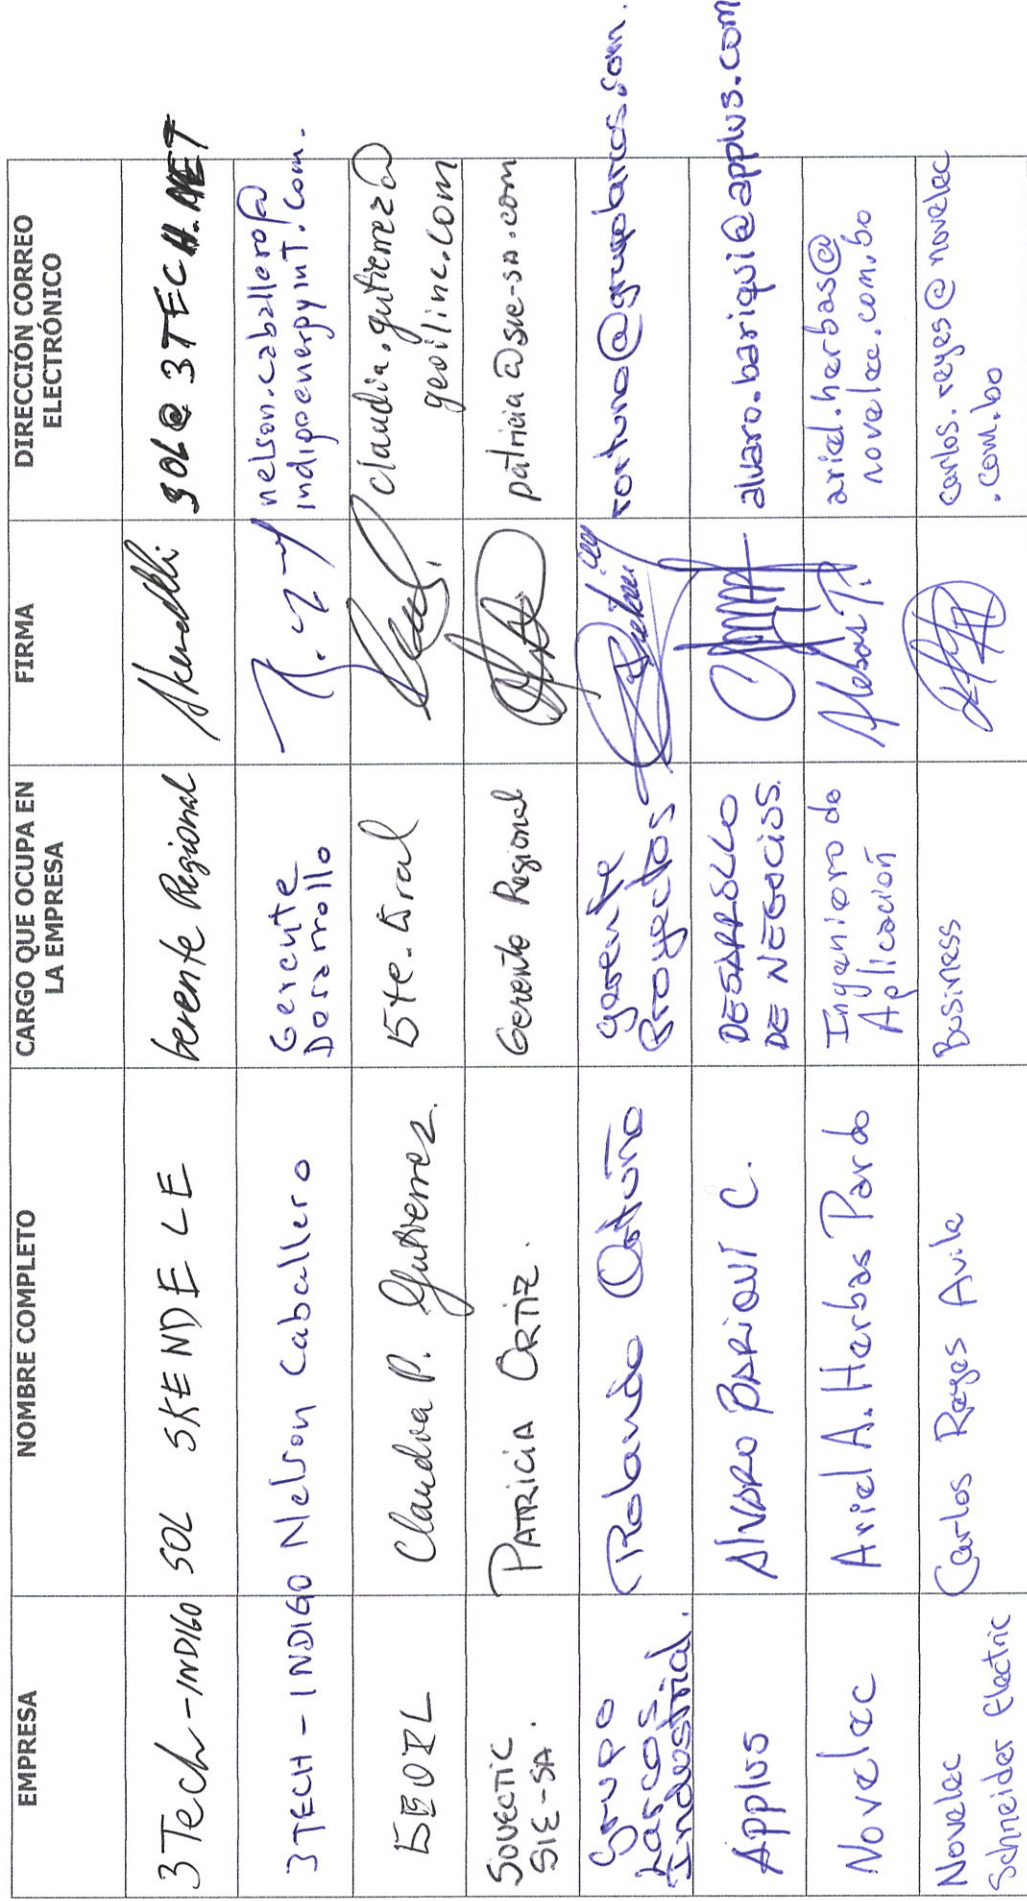 EMPRESA
NOMBRE COMPLETO
CARGO QUE OCUPA EN
LA EMPRESA
FIRMA
DIRECCIÓN CORREO
ELECTRÓNICO
3Tech-INDIGO
SOL SKENDELE
Gerente Regional
SOL@3TECH.NET
3TECH-INDIGO
Nelson Caballero
Gerente
Desarrollo
nelson.caballero@
indigoenergyint.com.
GEOIL
Claudia P. Gutierrez.
Gte. Gral
claudia.gutierrez@
geoilinc.com
SIE-SA.
PATRICIA ORTIZ.
Gerente Regional
patricia@sie-sa.com
Grupo
Larcos
Industrial.
Rolando Ortuño
Gerente
Proyectos
rortuno@grupolarcos.com.
Applus
Alvaro BARIQUI C.
DESARROLLO
DE NEGOCIOS.
alvaro.bariqui@applus.com
Novelec
Ariel A. Herbas Pardo
Ingeniero de
Aplicación
ariel.herbas@
novelec.com.bo
Novelec
Schneider Electric
Carlos Reyes Avila
Business
carlos.reyes@novelec
.com.bo